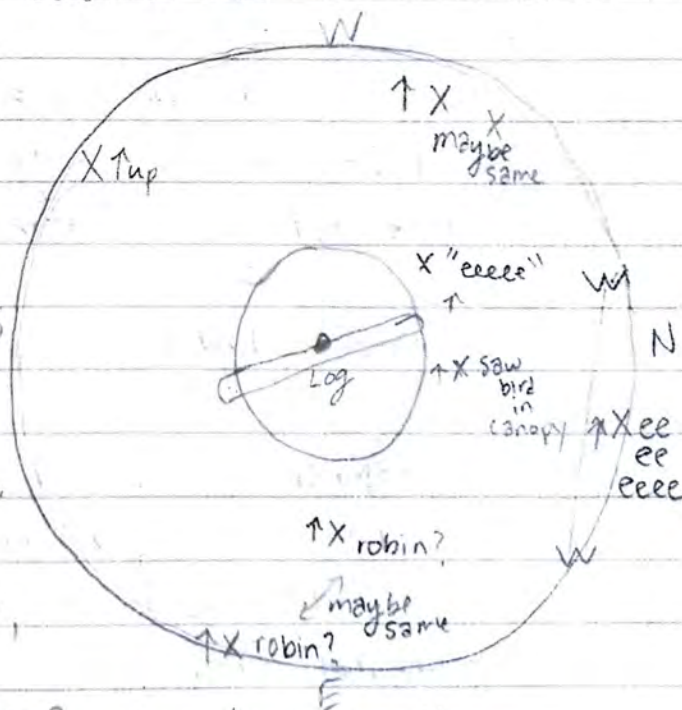 W
↑ X
X
maybe
same
X ↑up
X "eeeee"
↑
W
N
Log
↑ X saw
bird
in
canopy
↑ X ee
ee
eeee
↑ X robin?
W
maybe
same
↑ X robin?
E